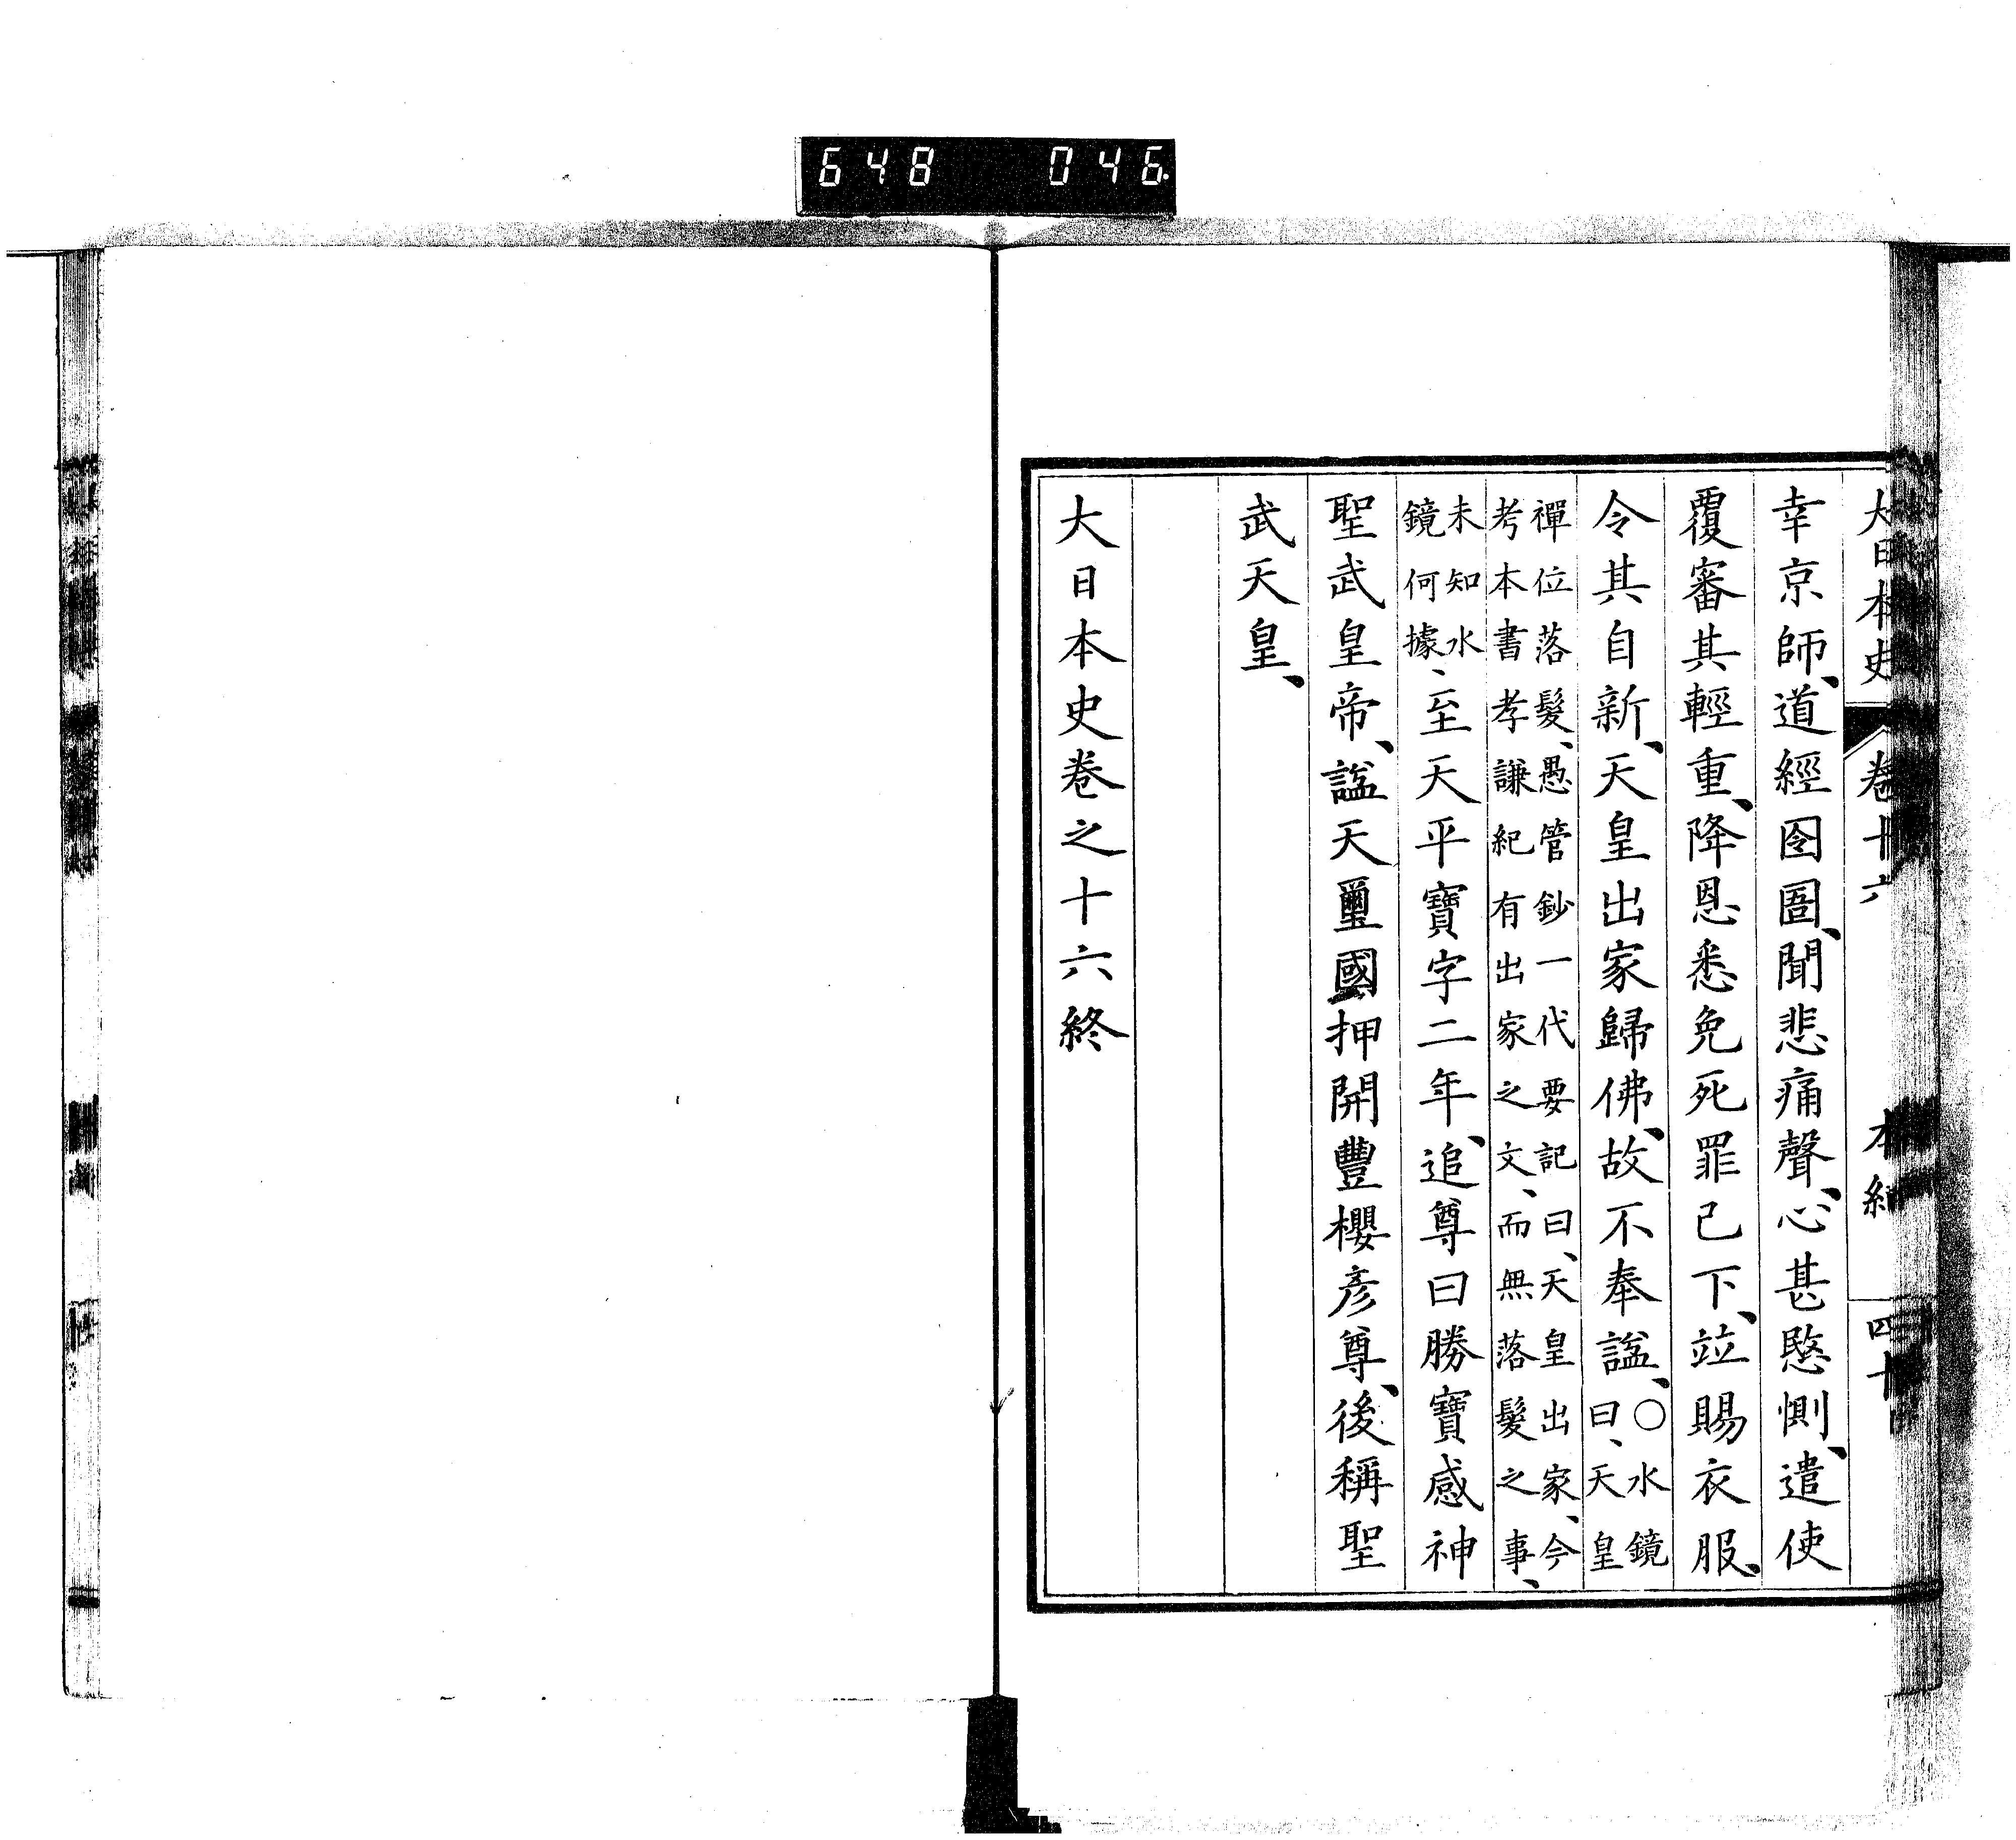 648 046
大日本史 卷十六 本紀 四十
幸京師、道經囹圄、聞悲痛聲、心甚愍惻、遣使
覆審其輕重、降恩悉免死罪已下、竝賜衣服、
令其自新、天皇出家歸佛、故不奉諡、〇水鏡曰、天皇
禪位落髮、愚管鈔一代要記曰、天皇出家、今
考本書孝謙紀有出家之文、而無落髮之事、
未知水鏡何據、至天平寶字二年、追尊曰勝寶感神
聖武皇帝、諡天璽國押開豐櫻彥尊、後稱聖
武天皇、
大日本史卷之十六終